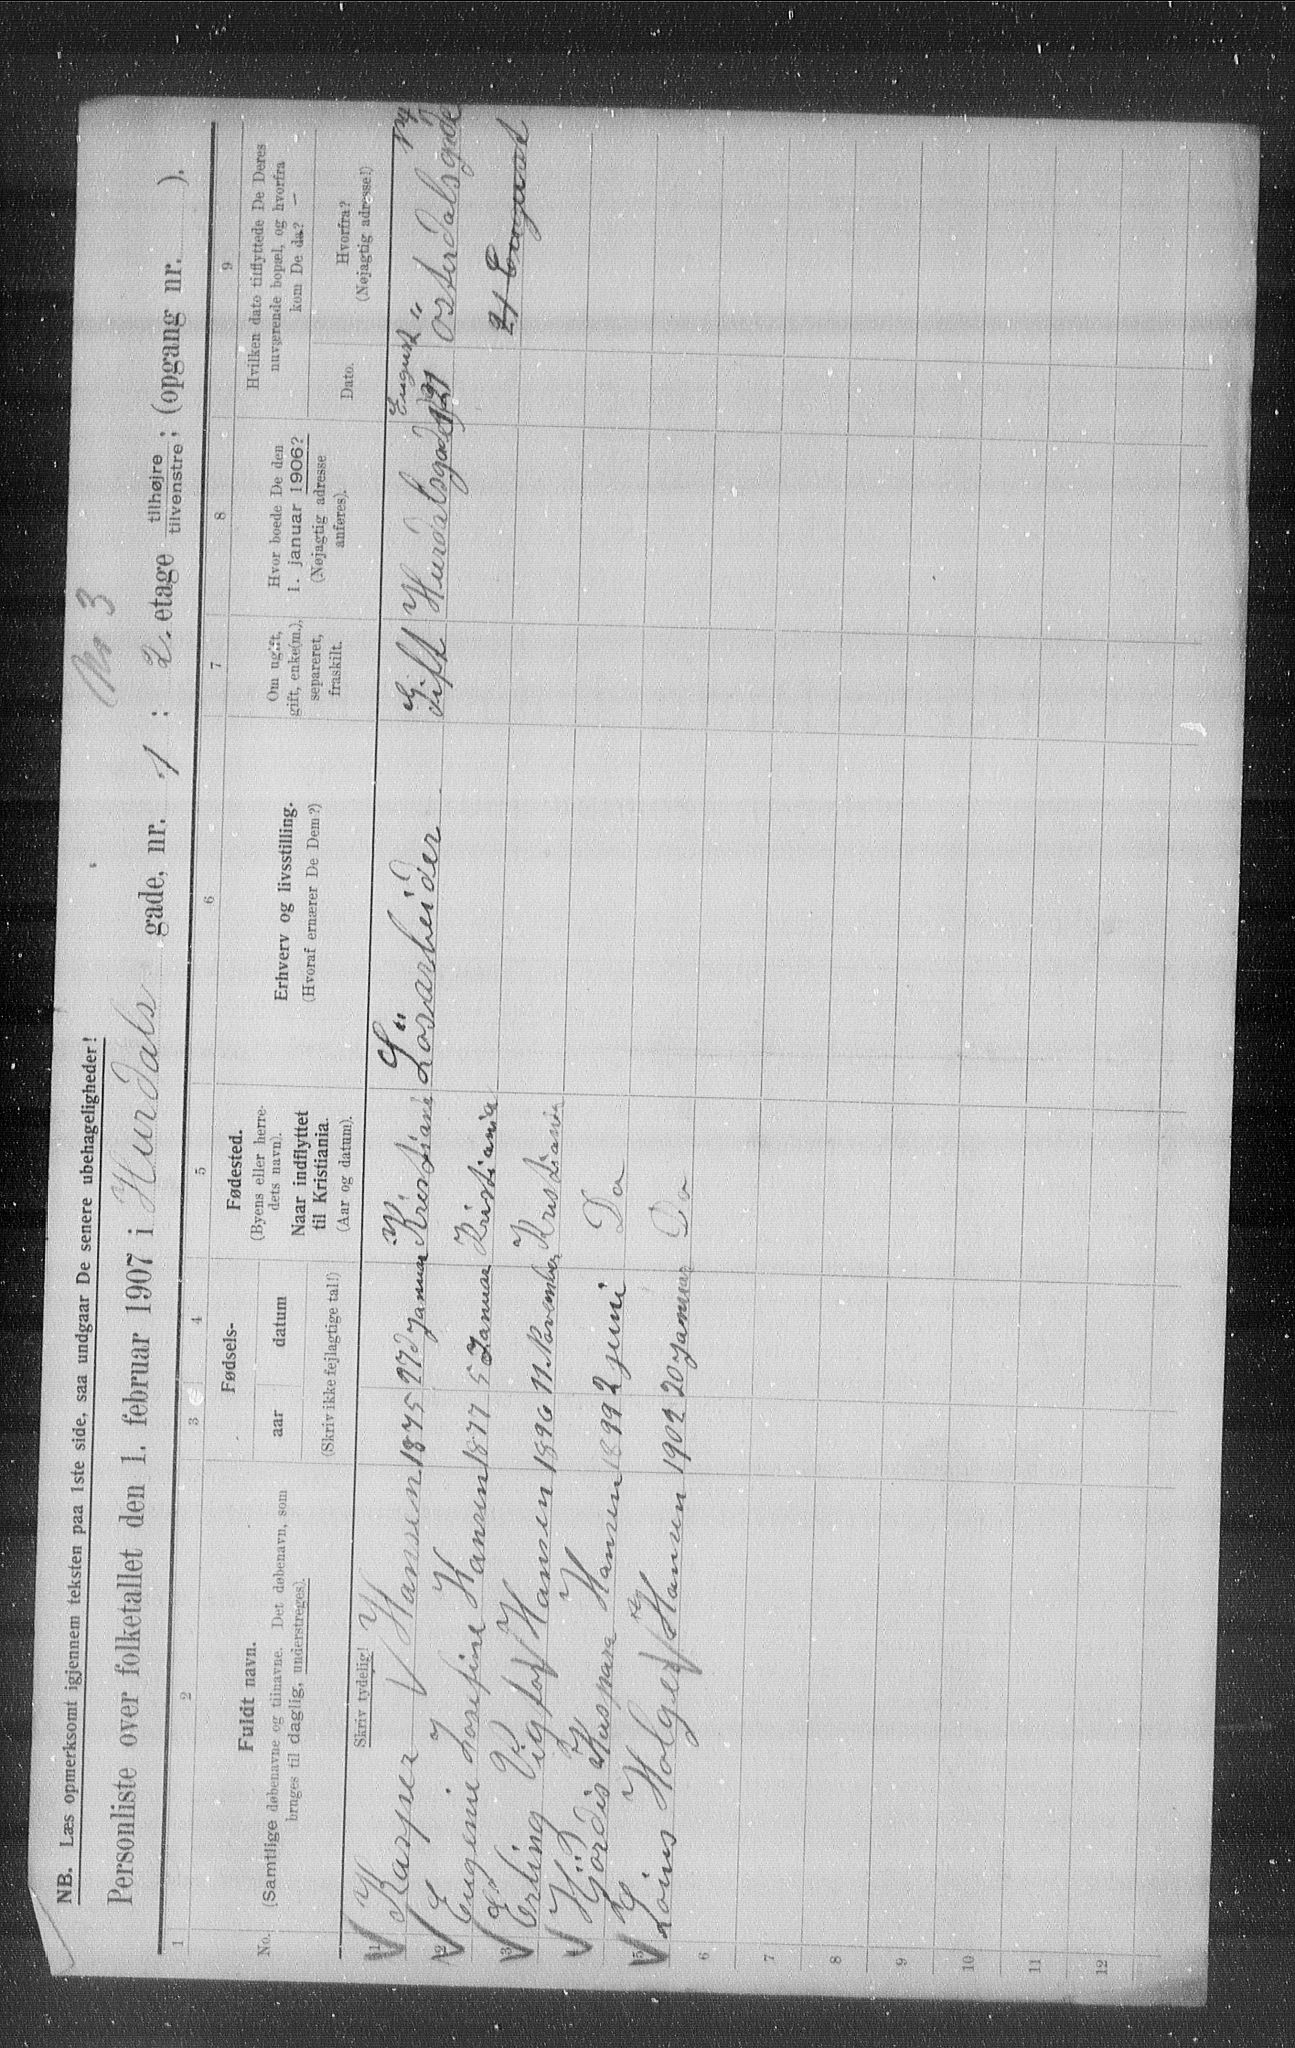 NB. Læs opmerksomt igjennem teksten paa 1ste side, saa undgaar De senere ubehageligheder!
No 3
Personliste over folketallet den 1. februar 1907 i Hurdals gade, nr. 1 : 2. etage tilhøjre tilvenstre; (opgang nr. ).
1 2 3 4 5 6 7 8 9
No.
Fuldt navn.
(Samtlige døbenavne og tilnavne. Det døbenavn, som
bruges til daglig, understreges).
Skriv tydelig!
Fødsels-
aar datum
(Skriv ikke fejlagtige tal!)
Fødested.
(Byens eller herre-
dets navn).
Naar indflyttet
til Kristiania.
(Aar og datum).
Erhverv og livsstilling.
(Hvoraf ernærer De Dem?)
Om ugift,
gift, enke(m.),
separeret,
fraskilt.
Hvor boede De den
1. januar 1906?
(Nøjagtig adresse
anføres).
Hvilken dato tilflyttede De Deres
nuværende bopæl, og hvorfra
kom De da?
Dato.
Hvorfra?
(Nøjagtig adresse!)
1 Kasper Hansen 1875 27 Januar Kristiania Lösarbeider Gift Hurdalsgade August Østerdalsgade
2 Eugenie Josefine Hansen 1877 5 Januar Kristiania 21 August
3 Erling Vigfos Hansen 1896 11. November Kristiania
Hjördis Kaspara Hansen 1899 2 juni Do
5 Holger Hansen 1902 20 Januar Do
6
7
8
9
10
11
12